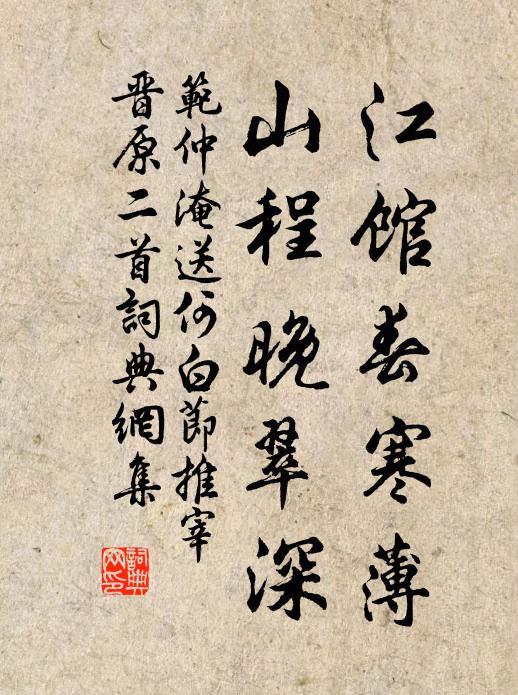 江馆春寒薄
山程晚翠深
範仲淹送何白節推宰
晋原二首詞典網集
詞典網印